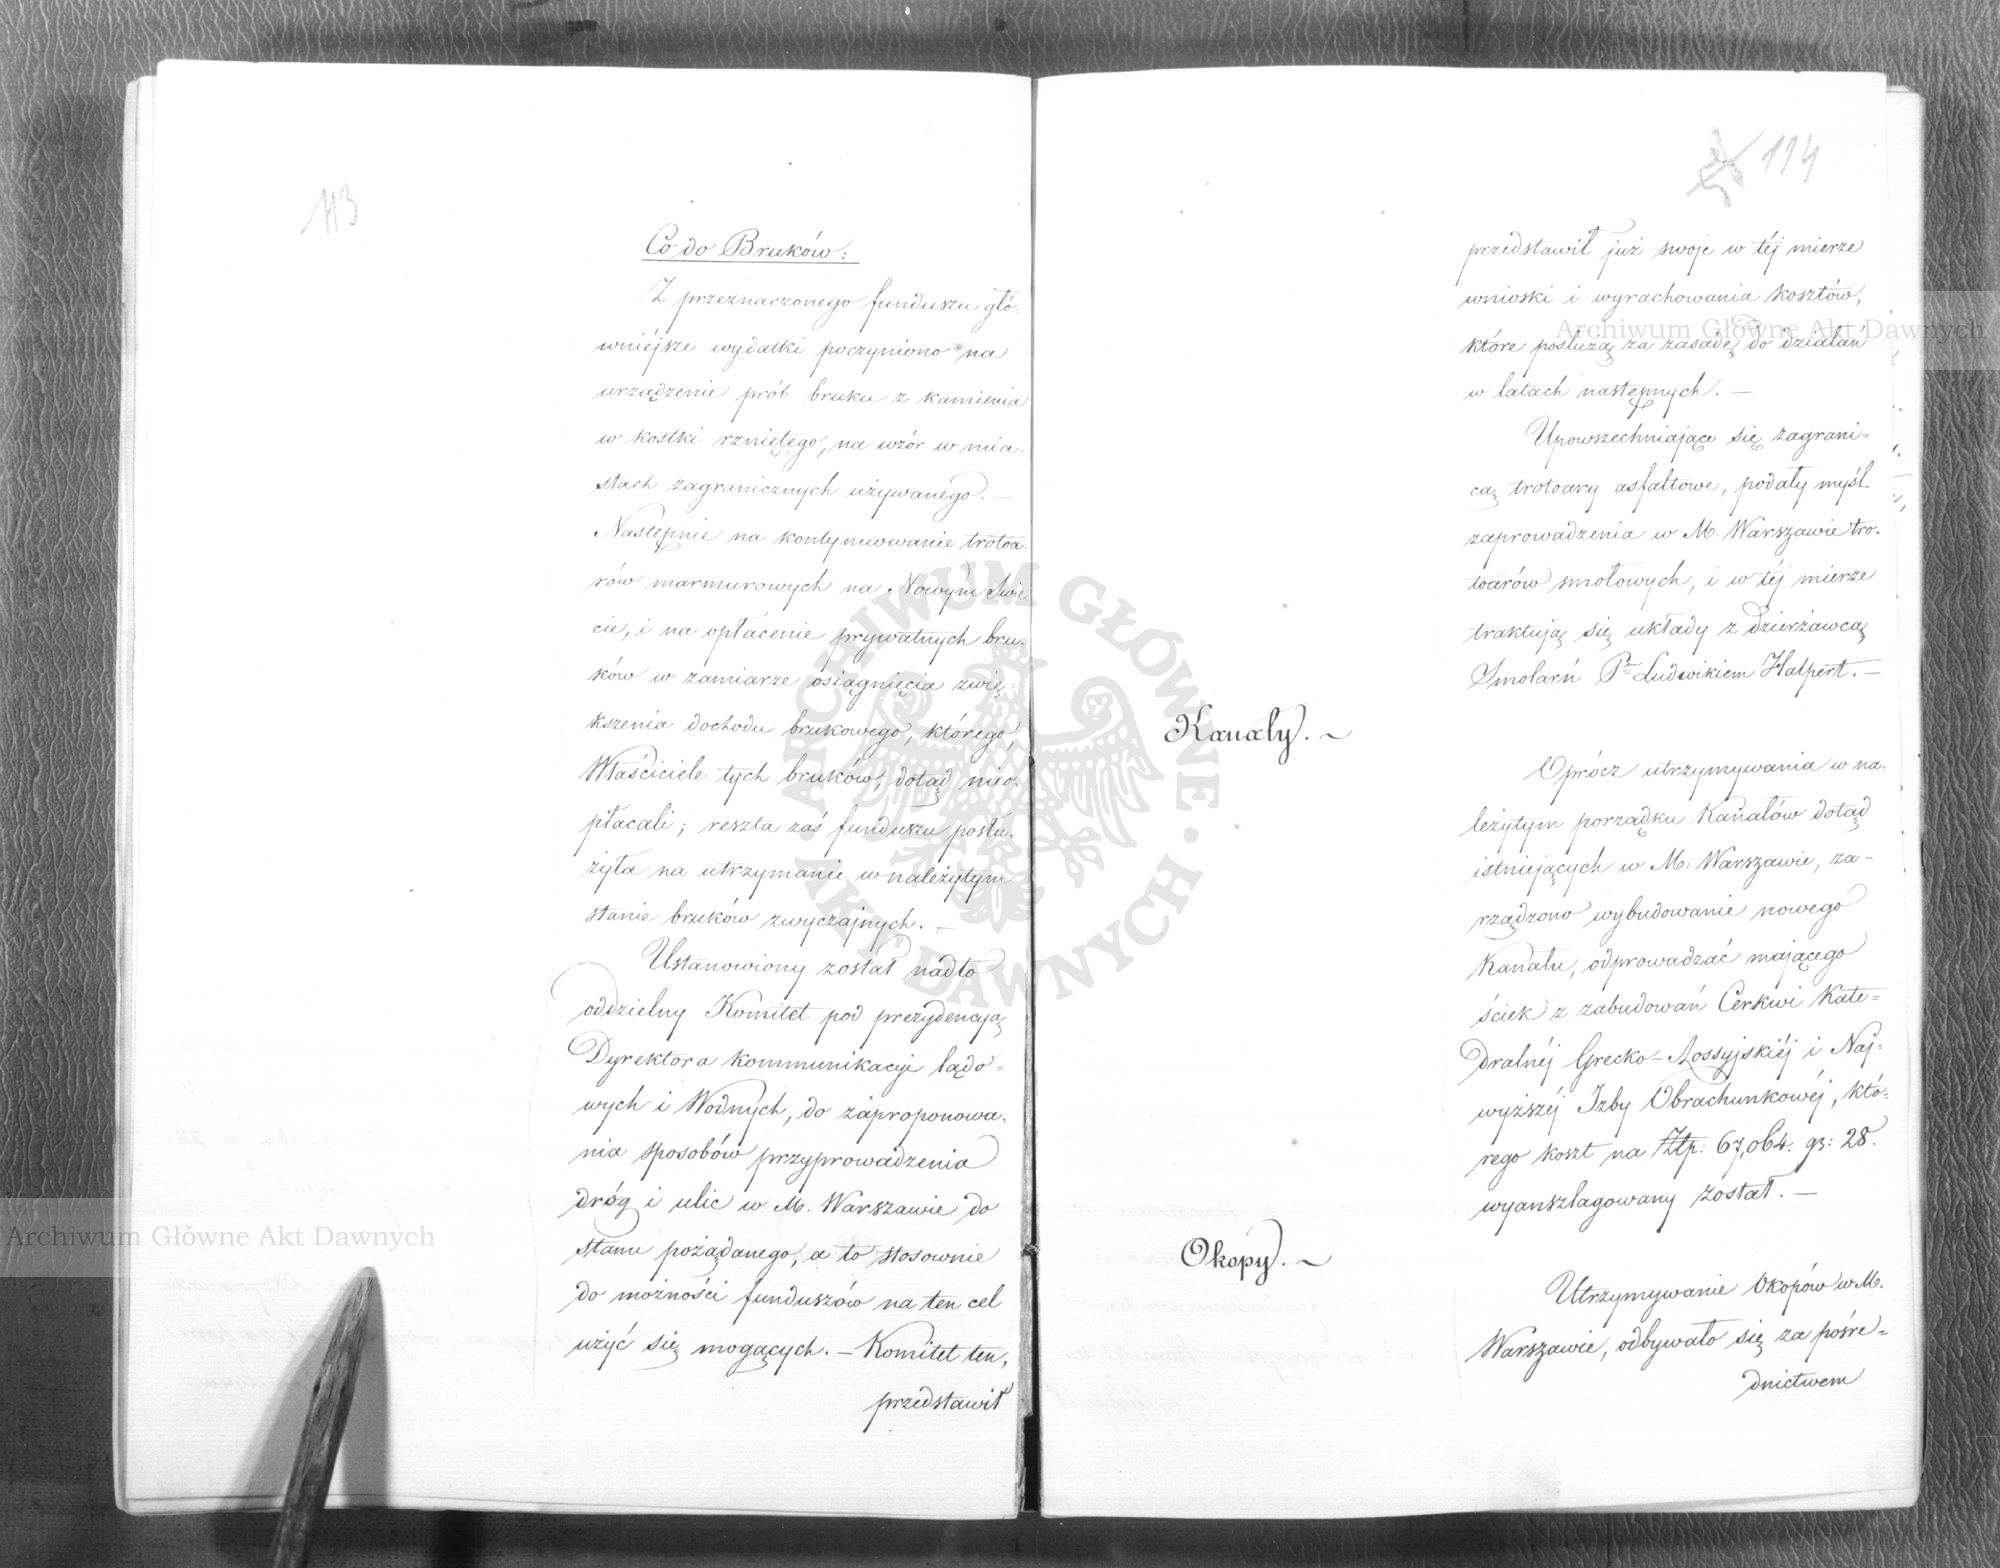 113
Co do Bruków:
Z przeznaczonego funduszu głó-
wniéjsze wydatki poczyniono na
urządzenie prób bruku z kamienia
w kostki rzniętego, na wzór w mia-
stach zagranicznych używanego. —
Następnie na kontynuowanie trotoa-
rów marmurowych na Nowym Świe-
cie, i na opłacenie prywatnych bru-
ków w zamiarze osiągnięcia zwię-
kszenia dochodu brukowego, którego,
Właściciele tych bruków, dotąd nieo-
płacali; reszta zaś funduszu posłu-
żyła na utrzymanie w należytym
stanie bruków zwyczajnych. —
Ustanowiony został nadto
oddzielny Komitet pod prezydencyą
Dyrektora kommunikacyi lądo-
wych i Wodnych, do zaproponowa-
nia sposobów przyprowadzenia
dróg i ulic w M. Warszawie do
stanu pożądanego, a to stosownie
do możności funduszów na ten cel
użyć się mogących. — Komitet ten,
przedstawił
114
przedstawił już swoje w téj mierze
wnioski i wyrachowania kosztów,
które posłużą za zasadę do działań
w latach następnych. —
Upowszechniające się zagrani-
cą trotoary asfaltowe, podały myśl
zaprowadzenia w M. Warszawie tro-
toarów smołowych, i w téj mierze
traktują się układy z dzierżawcą
Smolarń Pm Ludwikiem Halpert. —
Kanały. ~
Oprócz utrzymywania w na-
leżytym porządku Kanałów dotąd
istniejących w M: Warszawie, za-
rządzono wybudowanie nowego
Kanału, odprowadzać mającego
ściek z zabudowań Cerkwi Kate-
dralnéj Grecko-Rossyjskiéj i Naj-
wyższéj Izby Obrachunkowéj, któ-
rego koszt na Złp: 67,064. gr: 28.
wyanszlagowany został. —
Okopy. ~
Utrzymywanie Okopów w M.
Warszawie, odbywało się za pośre-
dnictwem
Archiwum Główne Akt Dawnych
Archiwum Główne Akt Dawnych
ARCHIWUM GŁÓWNE · AKT DAWNYCH ·